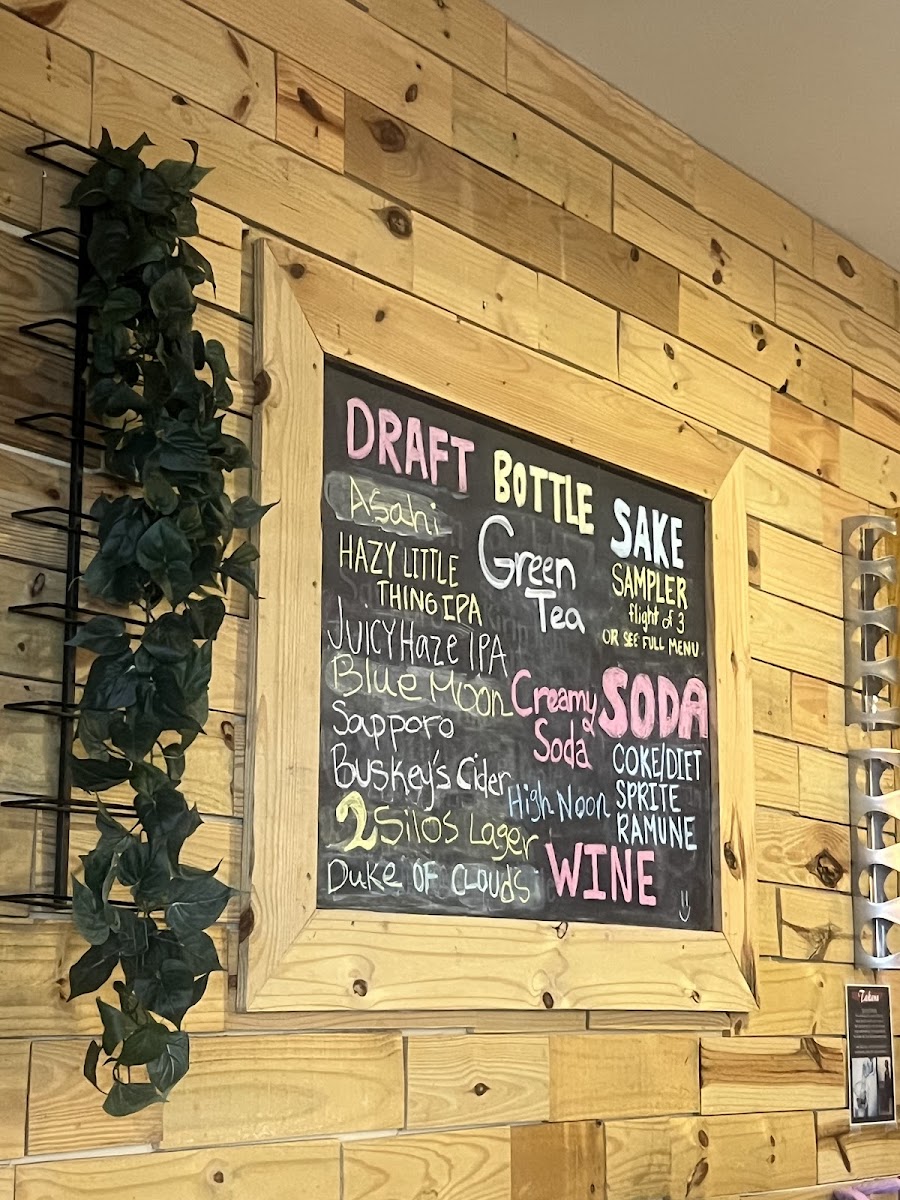 DRAFT
Asahi
HAZY LITTLE
THING IPA
JUICY Haze IPA
Blue Moon
Sapporo
Buskey's Cider
2 Silos Lager
Duke OF CLOUDS
BOTTLE
Green
Tea
Creamy
Soda
High Noon
WINE
SAKE
SAMPLER
flight of 3
OR SEE FULL MENU
SODA
COKE/DIET
SPRITE
RAMUNE